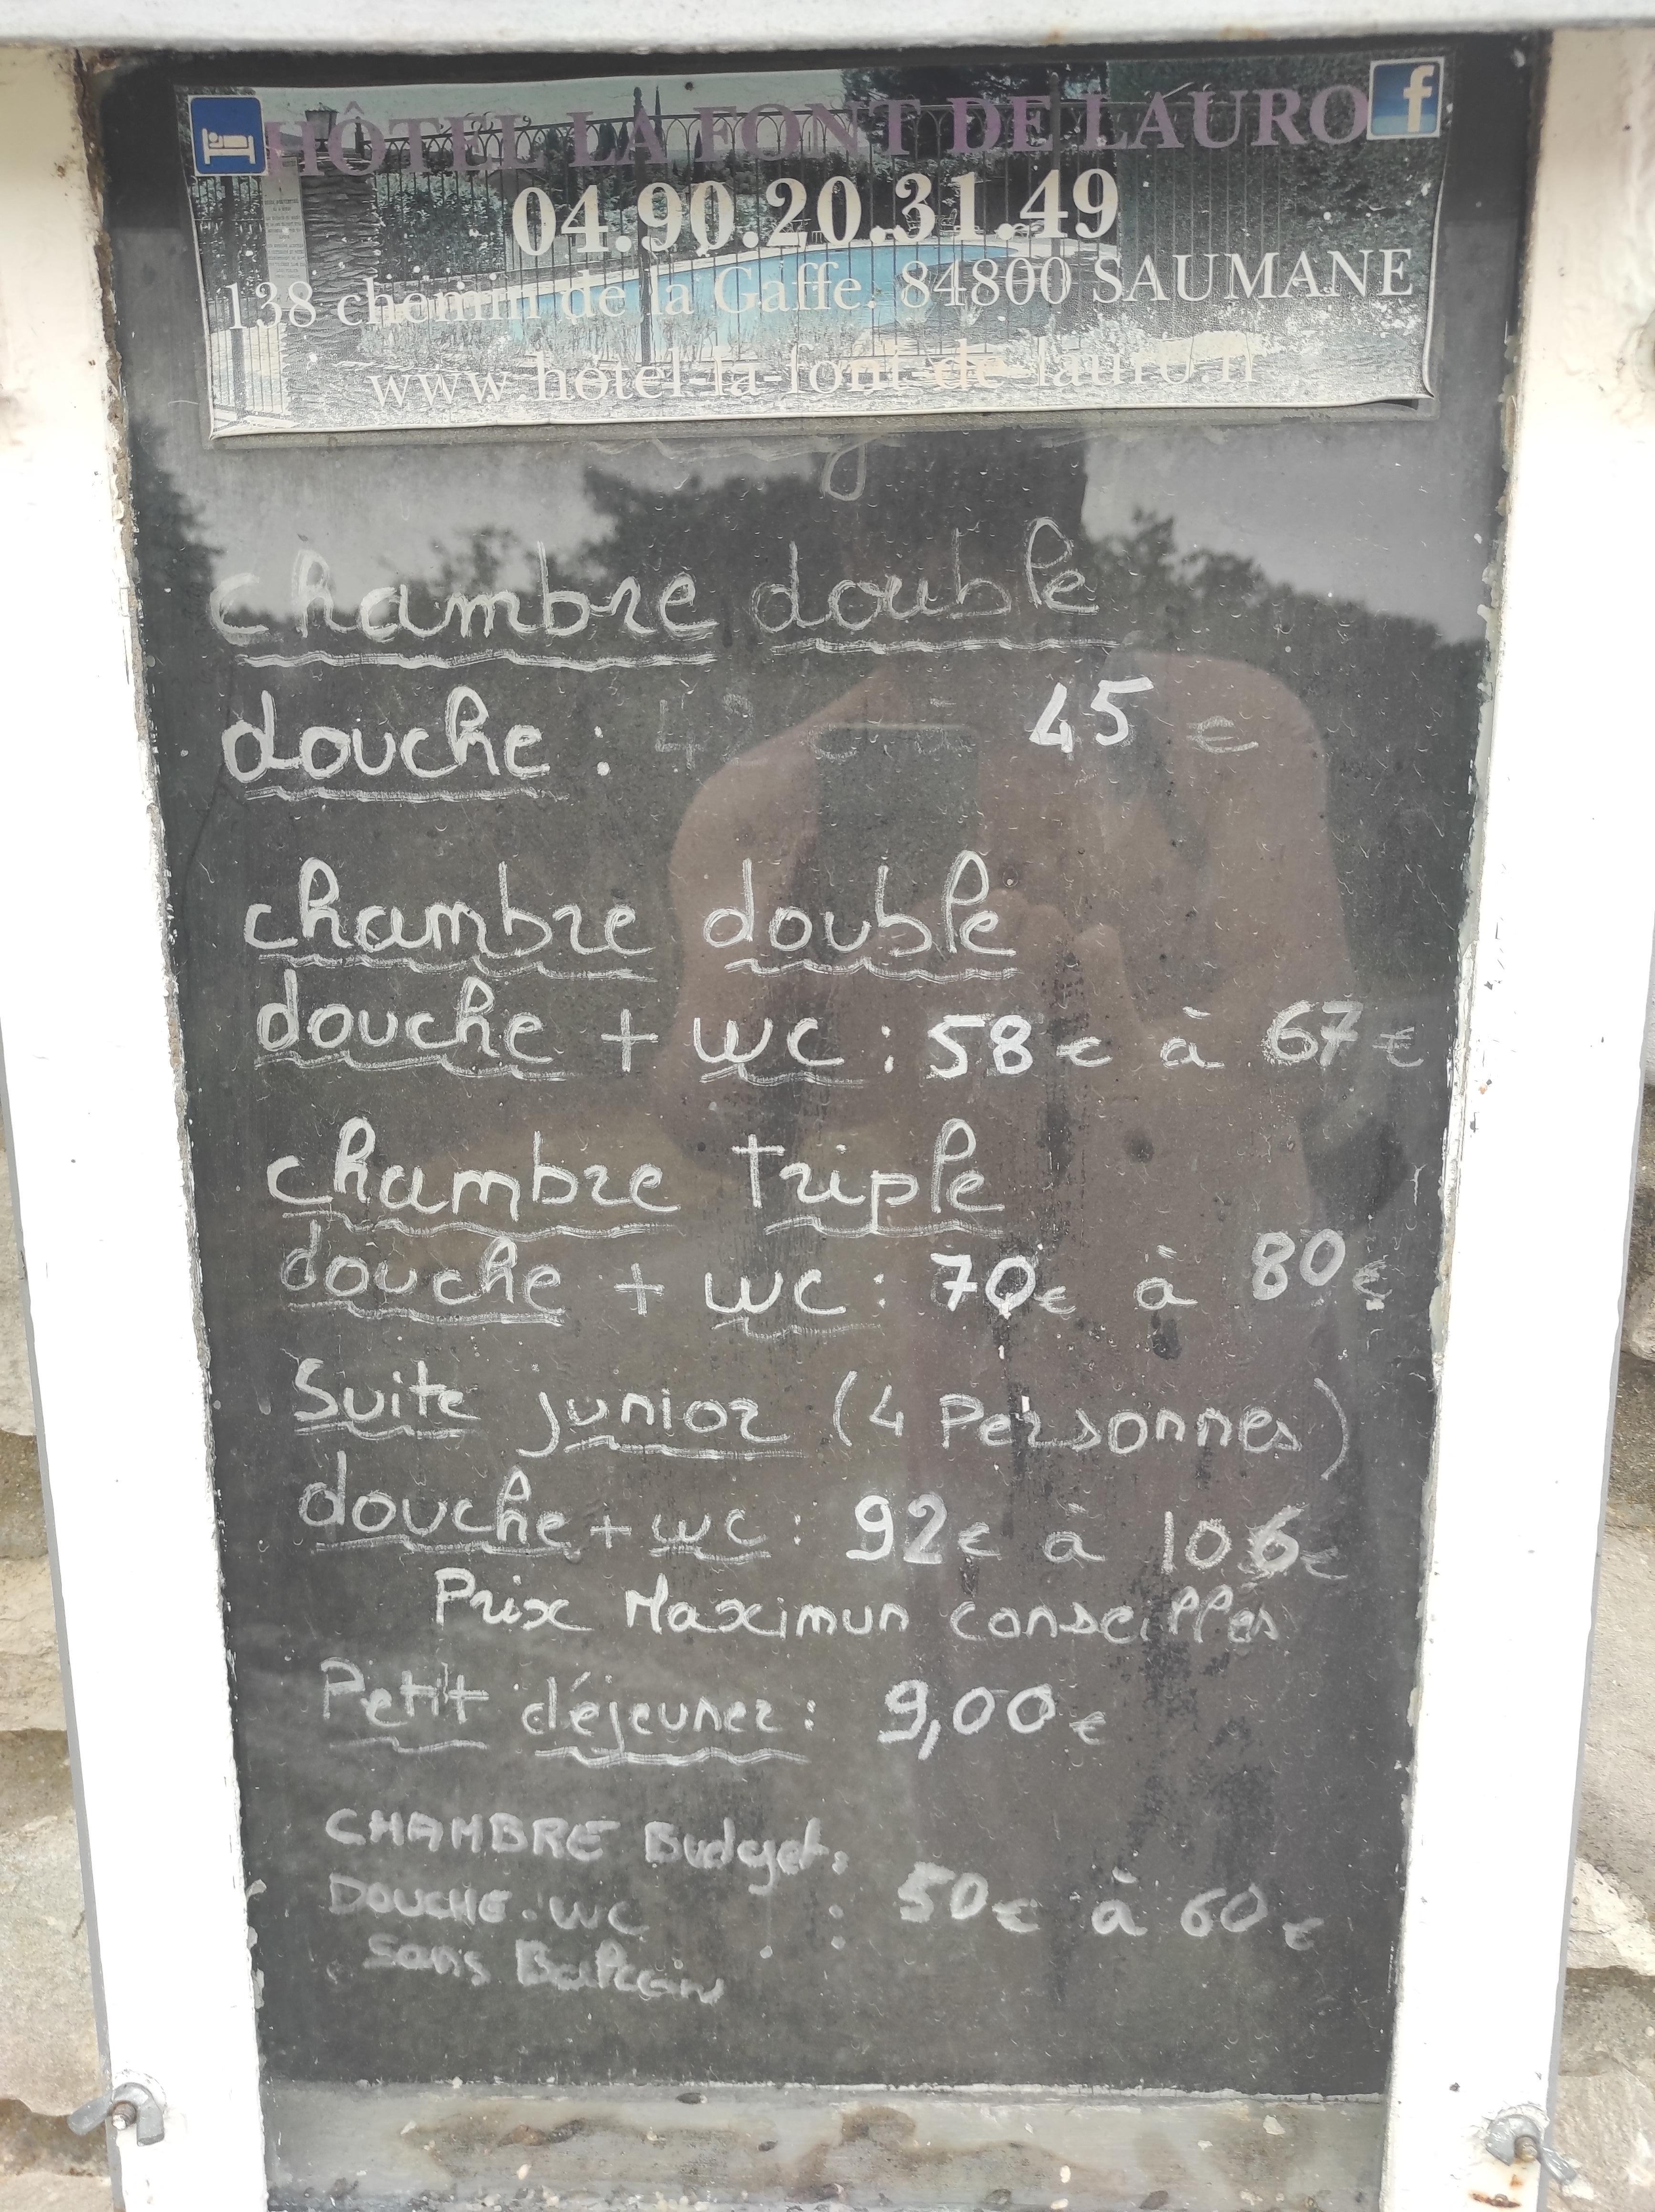 HÔTEL LA FONT DE LAURO
04.90.20.31.49
138 chemin de la Gaffe. 84800 SAUMANE
www.hôtel-la-font-de-lauro.fr
chambre double
douche : 45 €
chambre double
douche + wc : 58 € à 67 €
chambre triple
douche + wc : 70 € à 80 €
Suite junior (4 Personnes)
douche + wc : 92 € à 106 €
Prix Maximun conseillés
Petit déjeuner : 9,00 €
CHAMBRE Budget :
DOUCHE . WC : 50 € à 60 €
Sans Balcon